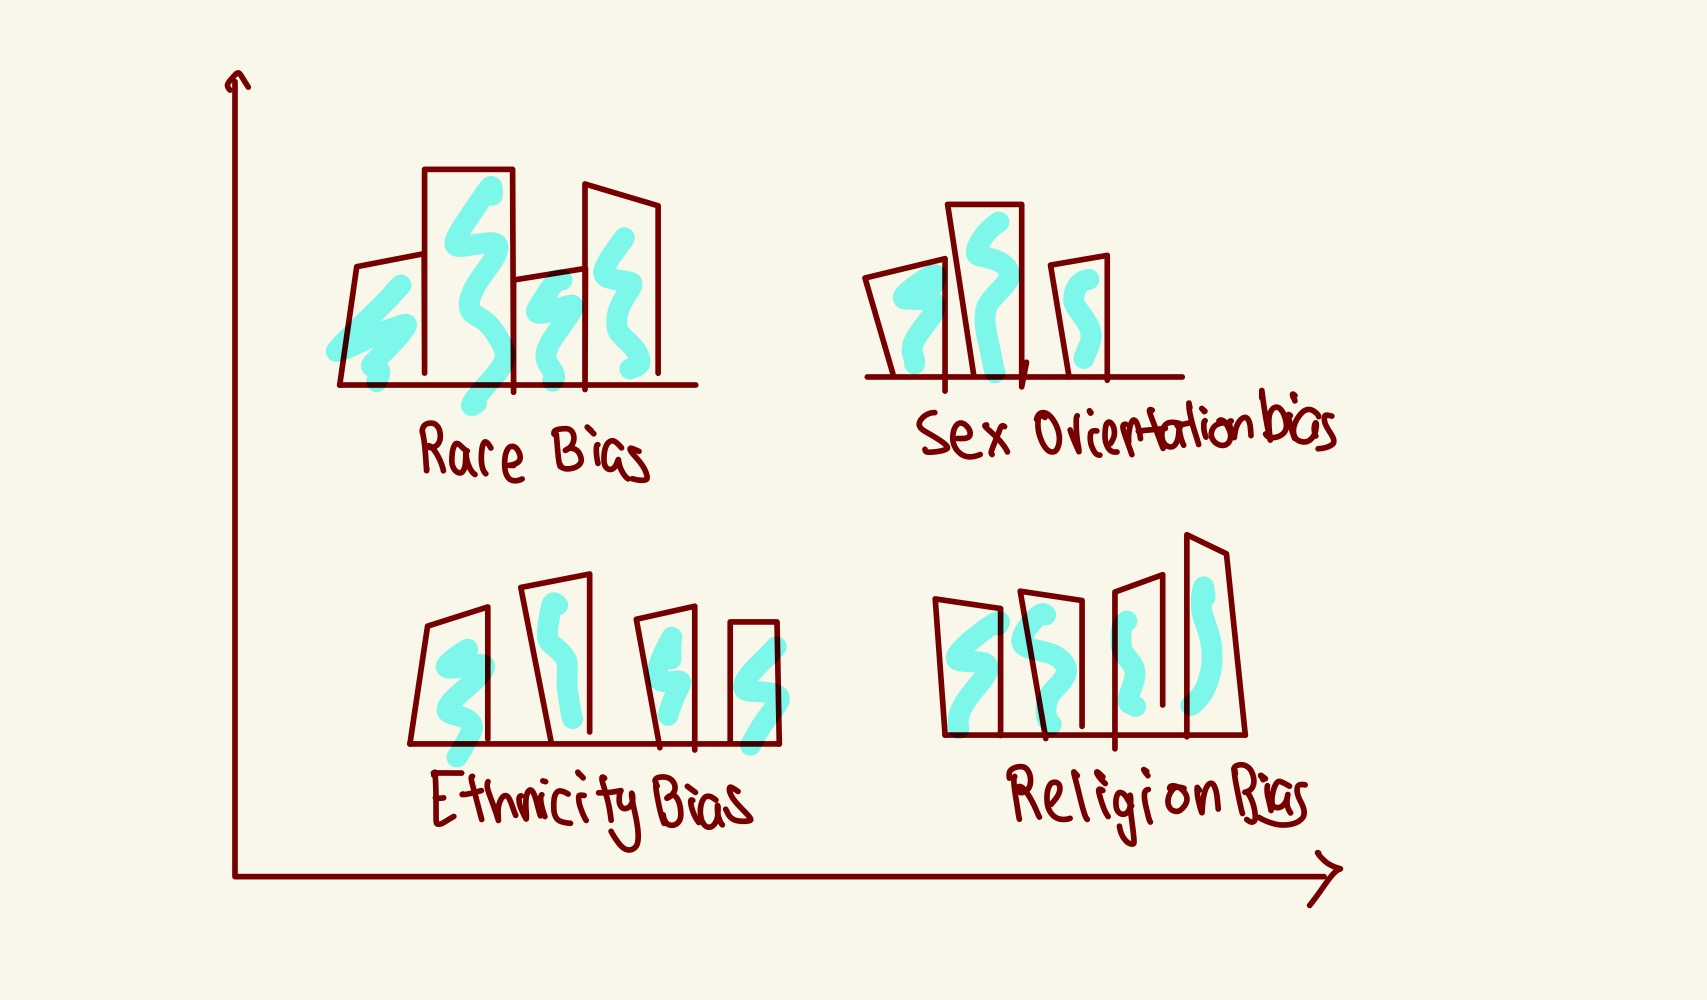 Race Bias
Sex Orientation bias
Ethnicity Bias
Religion Bias